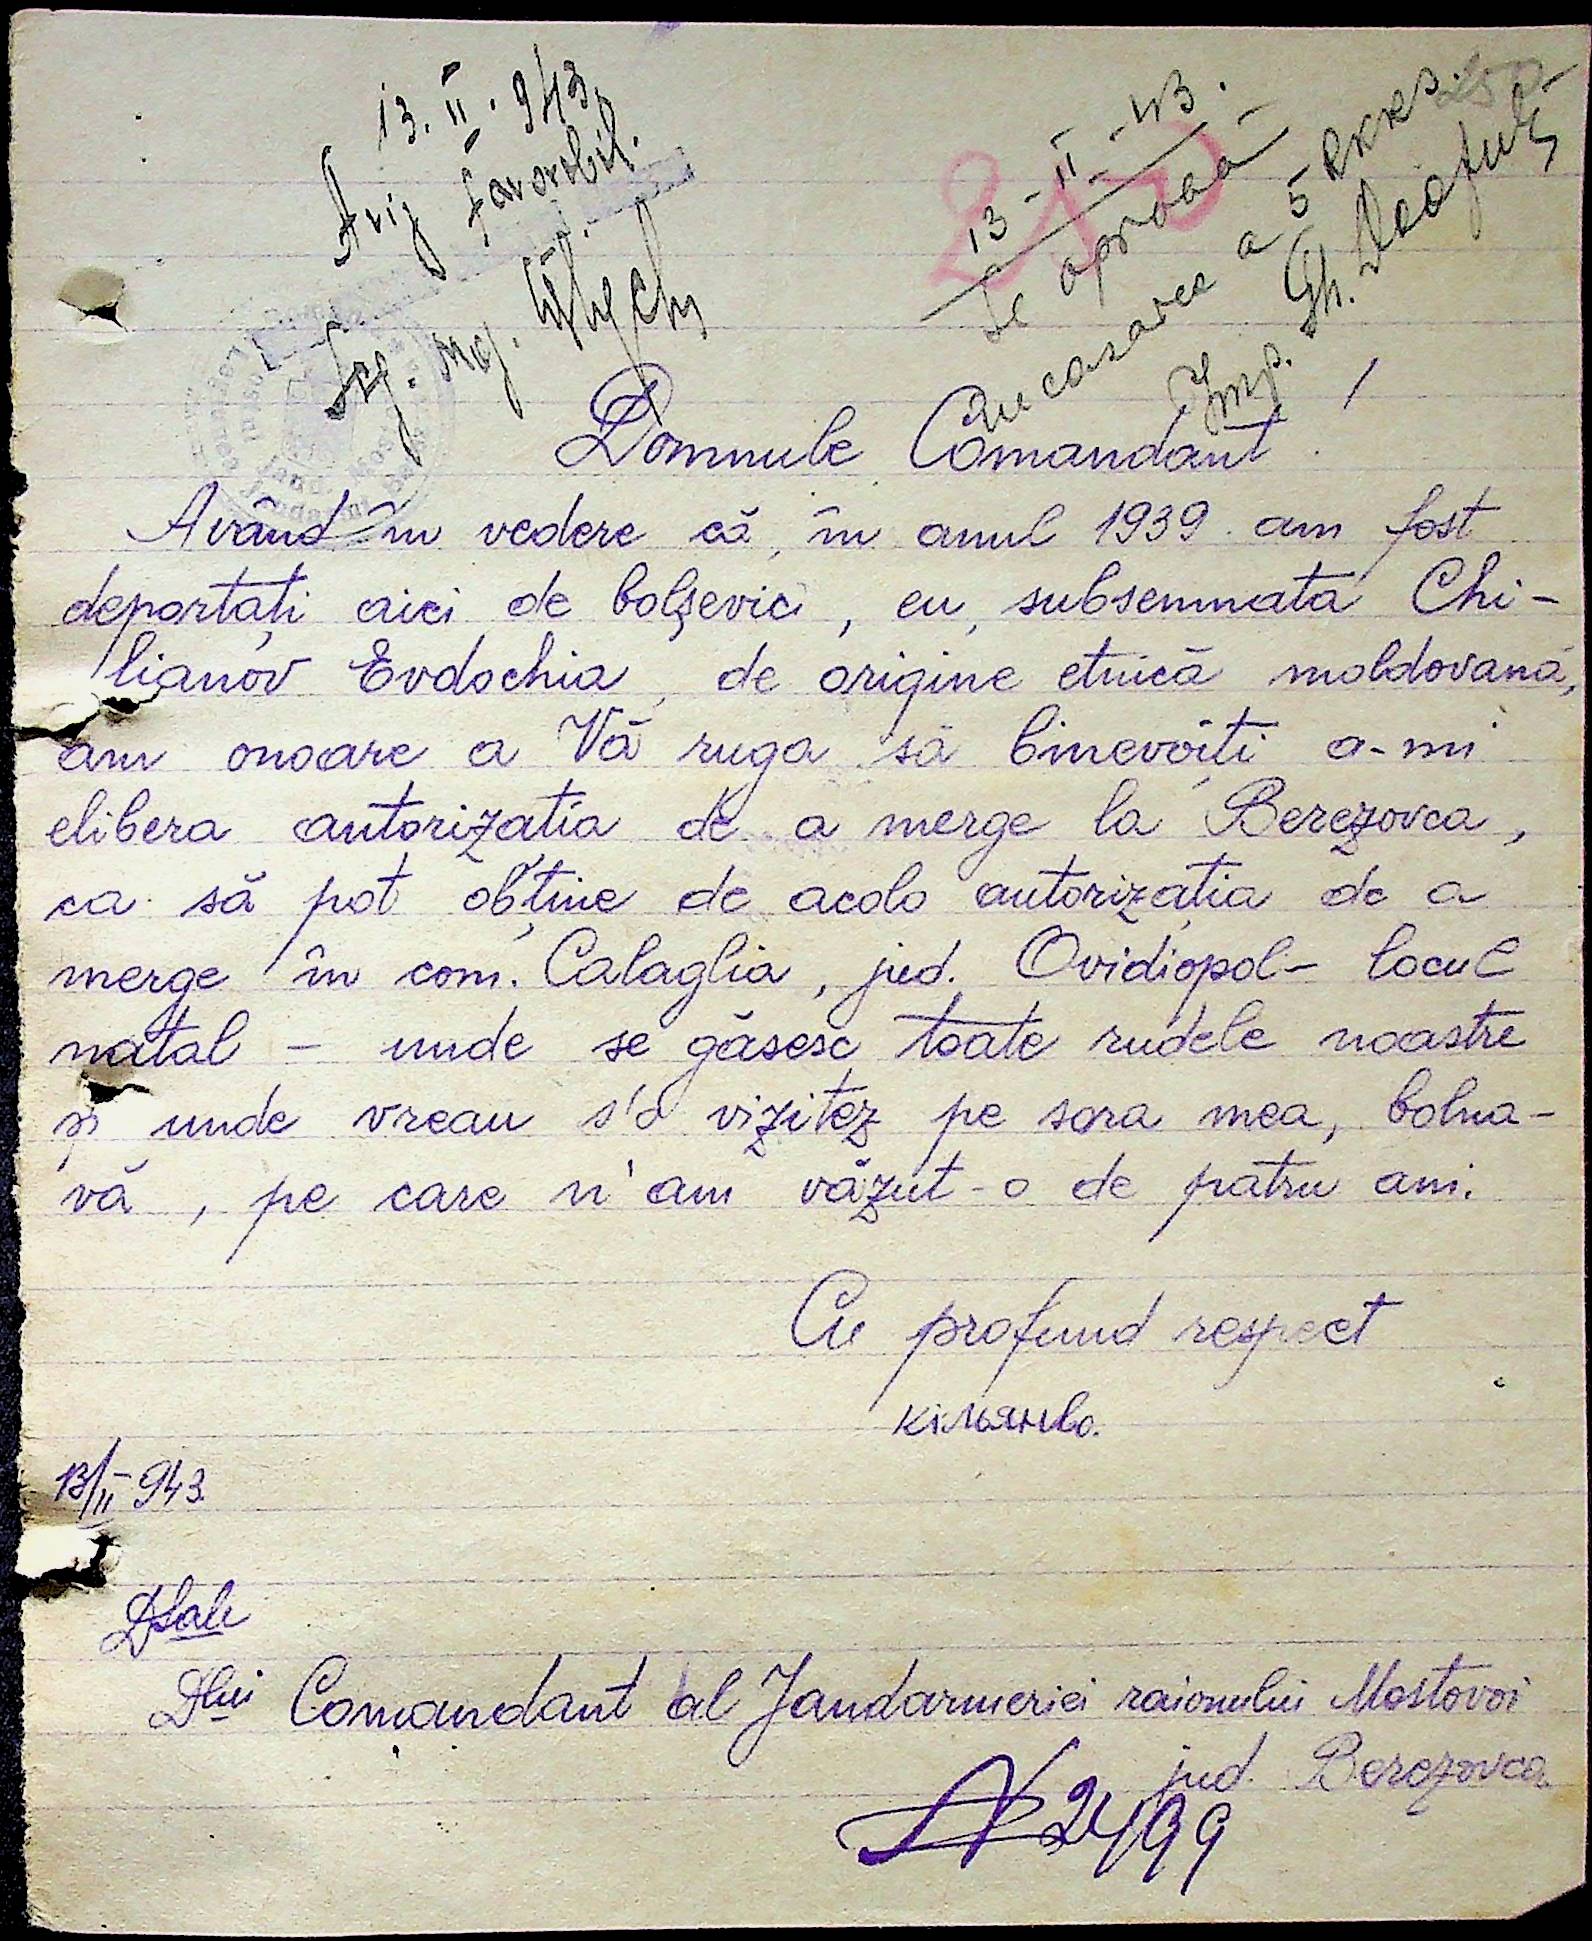 13.II.943
Aviz favorabil.
13-II-43.
Se aproba
a 5 
Gh.
Domnule Comandant!
Având în vedere că, în anul 1939 am fost
deportați aici de bolșevici, eu, subsemnata Chi-
lianov Evdochia, de origine etnică moldovană,
am onoare a Vă ruga să binevoiți a-mi
elibera autorizatia de a merge la Berezovca,
ca să pot obține de acolo autorizația de a
merge în com. Calaglia, jud. Ovidiopol - locul
natal - unde se găsesc toate rudele noastre
și unde vreau s'o vizitez pe sora mea, bolna-
vă, pe care n'am văzut-o de patru ani.
Cu profund respect
кільянво.
13/II-943.
DSale
Dlui Comandant al Jandarmeriei raionului Mostovoi
jud. Berezovca
N 2499